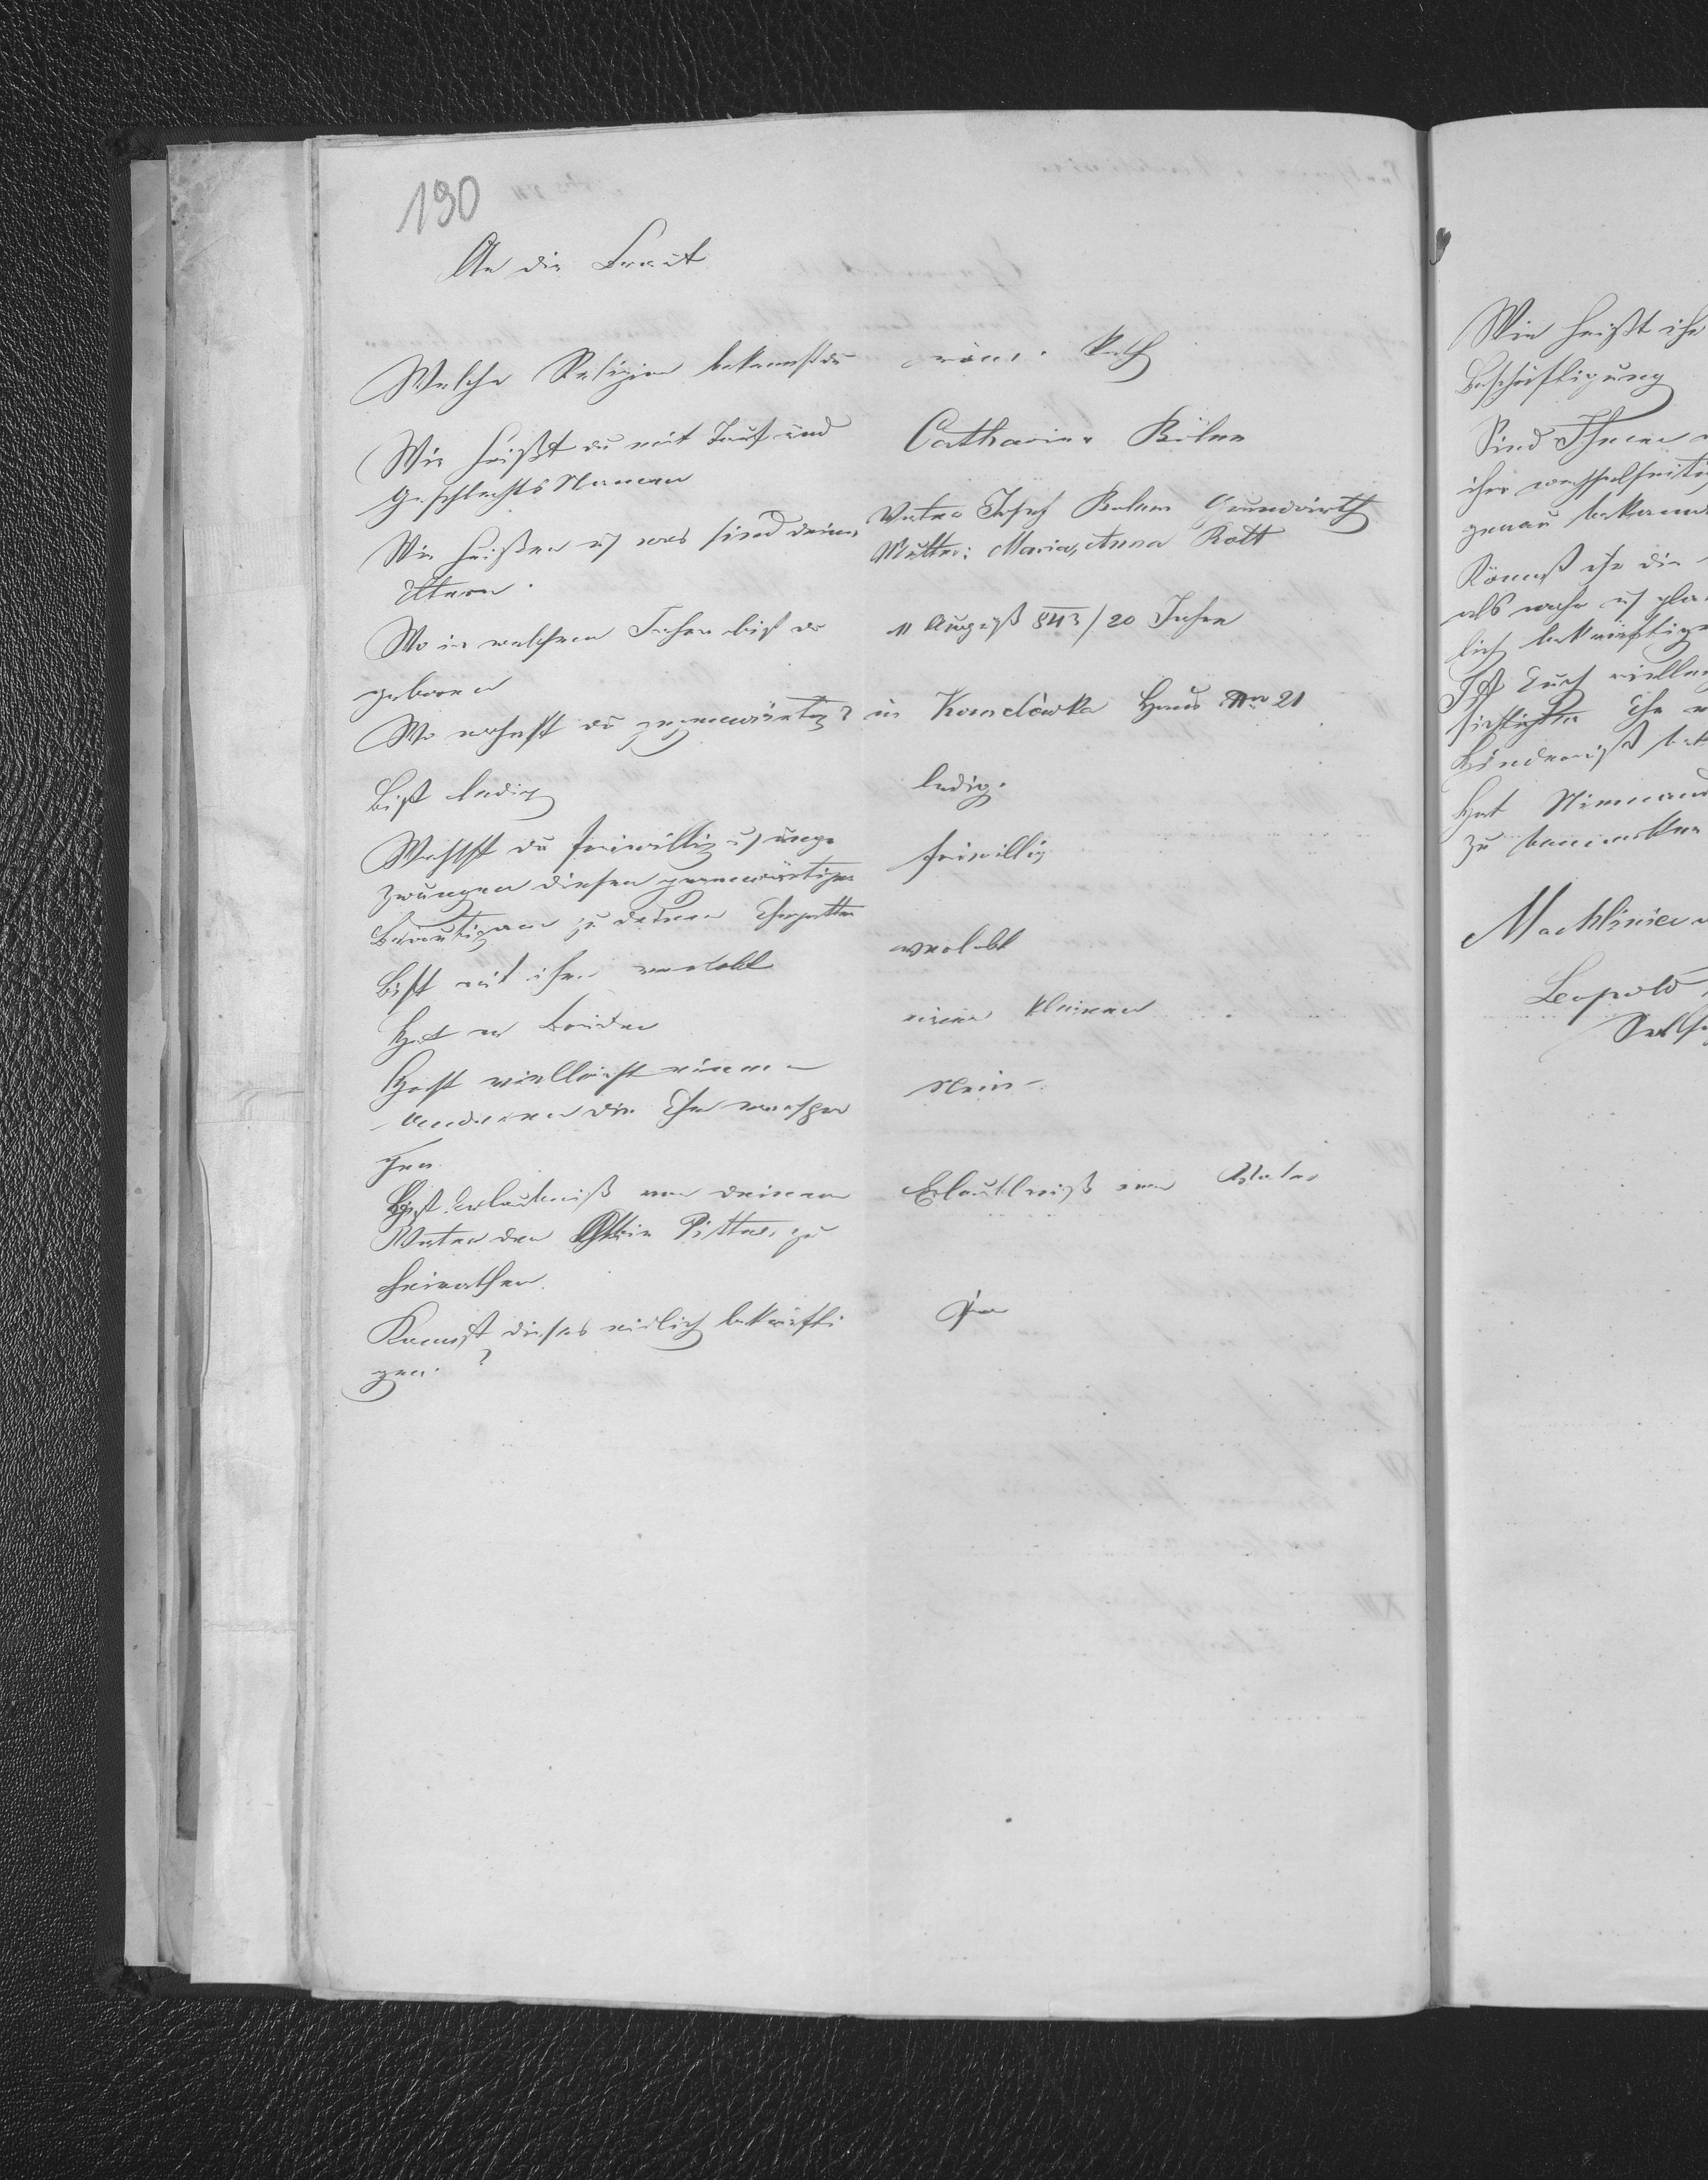 190
An die Braut
Welche Religion bekennst du
röm. Kath
Wie heißt du mit Tauf und
Geschlechts Namen
Catharina
Wie heißen u was sind deine
Eltern.
Vater Josef Grundwirth
Mutter: Maria, Anna Rott
Wo in welchem Jahre bist du
geboren
11 August 843/20 Jahre
Wo wohnst du gegenwärtig?
in Komelówka Haus Nro 21
Bist ledig
ledig.
Wählst du freiwillig u unge
zwungen diesen gegenwärtigen
Bräutigam zu deinem Ehegatten
freiwillig
Bist mit ihm verlobt
verlobt
Hat er Brüder
einen kleinen
Hast vielleicht einem
Anderen die Ehe verspro
chen
Nein.
Hast Erlaubniß von deinem
Vater den zu
heirathen.
Erlaubniß vom Vater
Kannst dieses eidlich bekräfti
gen. ?
Ja
Wie heißt ihr
Beschäftigung
Sind Ihnen
ihre wechselseitig
genau bekannt
Könnt ihr die
als wahr u
lich bekräftigen
Ist Euch vielleicht
Ehe
Hinderniß bek
Hat Niemand
zu bemerken
Leopold